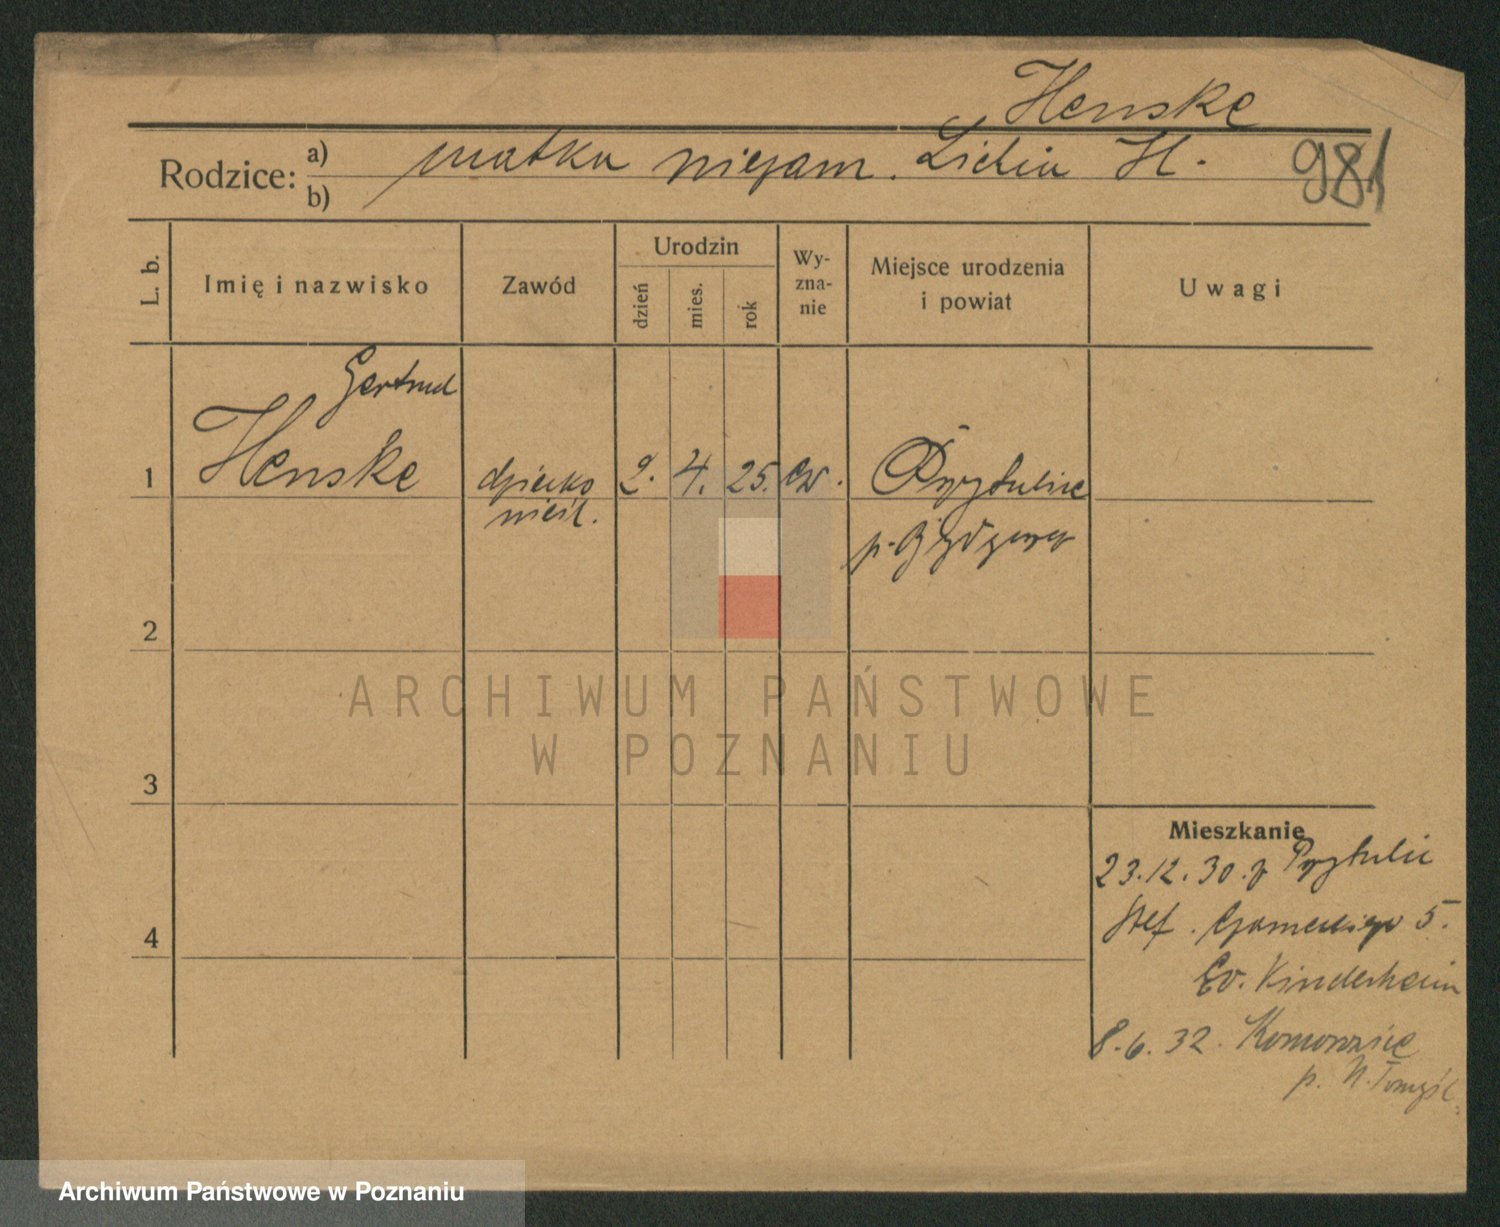 Henske
Rodzice: a) matka niezam. Lidia H.
b)
981
L. b.
Imię i nazwisko
Zawód
Urodzin
dzień
mies.
rok
Wy-
zna-
nie
Miejsce urodzenia
i powiat
Uwagi
Gertrud
1 Henske dziecko 2. 4. 25. ew. Przytulnie
nieśl. p.
2
3
4
Mieszkanie
23.12.30. z
Stef. Czarneckiego 5.
Ev. Kinderheim
8.6.32. Komorowice
p. N. Tomyśl.
ARCHIWUM PAŃSTWOWE
W POZNANIU
Archiwum Państwowe w Poznaniu